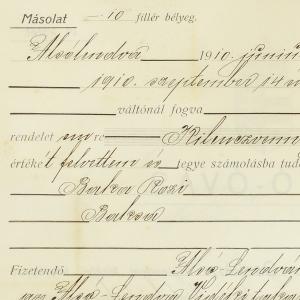 Másolat — 10 fillér bélyeg.
Alsólendva 1910. junius
1910. szeptember 14
váltónál fogva
rendelet re Kilenczven
értéke't felvettem és tegye számolásba tud
Baka Rozi
Baksa
Fizetendő Alsó-Lendván
Alsó-Lendva Vidéki